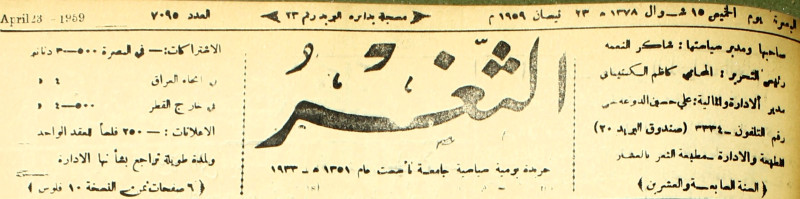 البصرة يوم الخميس ١٥ شوال ١٣٧٨ ه ٢٣ نيسان ١٩٥٩ م
مسجلة بدائرة البريد رقم ٢٣
العدد ٧٠٩٥
April 23 - 1959
صاحبها ومدير سياستها : شاكر النعمه
رئيس التحرير : المحامي كاظم
مدير الادارة والمالية : علي حسين
رقم التلفون - ٣٣٣٤ (صندوق البريد ٢٠)
الطبعة والادارة - مطبعة الثغر بالعشار
( السنة السابعة والعشرين )
الثغر
جريدة يومية سياسية جامعة تأسست عام ١٣٥١ ه - ١٩٣٣
الاشتراكات : - في البصرة ٥٠٠-٣ دنانير
في انحاء العراق ٤ د
في خارج القطر ٥٠٠-٤ د
الاعلانات : - ٢٥٠ فلساً للعقد الواحد
ولمدة طويلة تراجع بشأنها الادارة
( ٦ صفحات ثمن النسخة ١٠ فلوس )